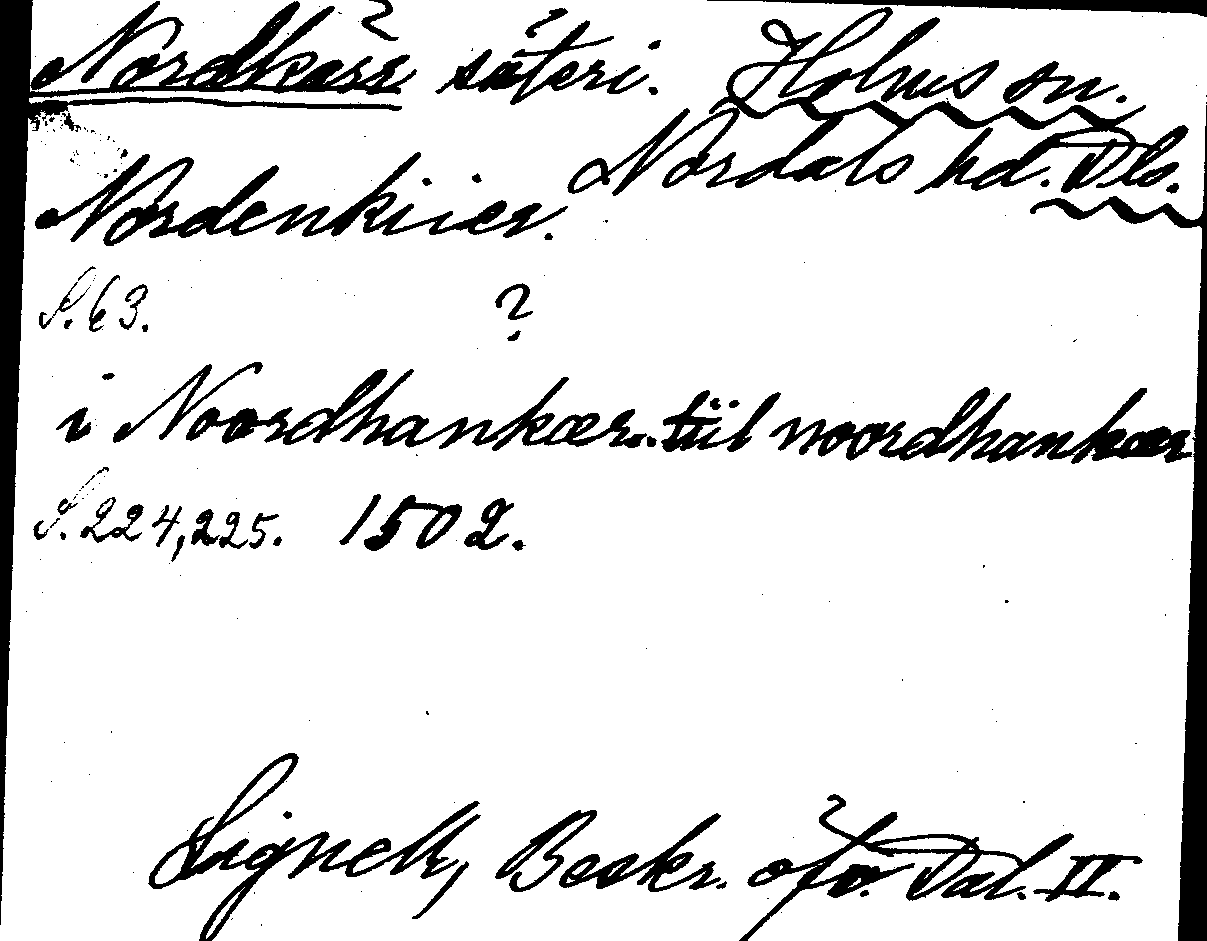 Nordkärr säteri. Holms sn.
Nordals hd. Dls.
Nordenkiier.
S. 63. ?
i Noordhankær.. tiil noordhankær
S. 224, 225. 1502.
Lignell, Beskr. öfv. Dal. II.